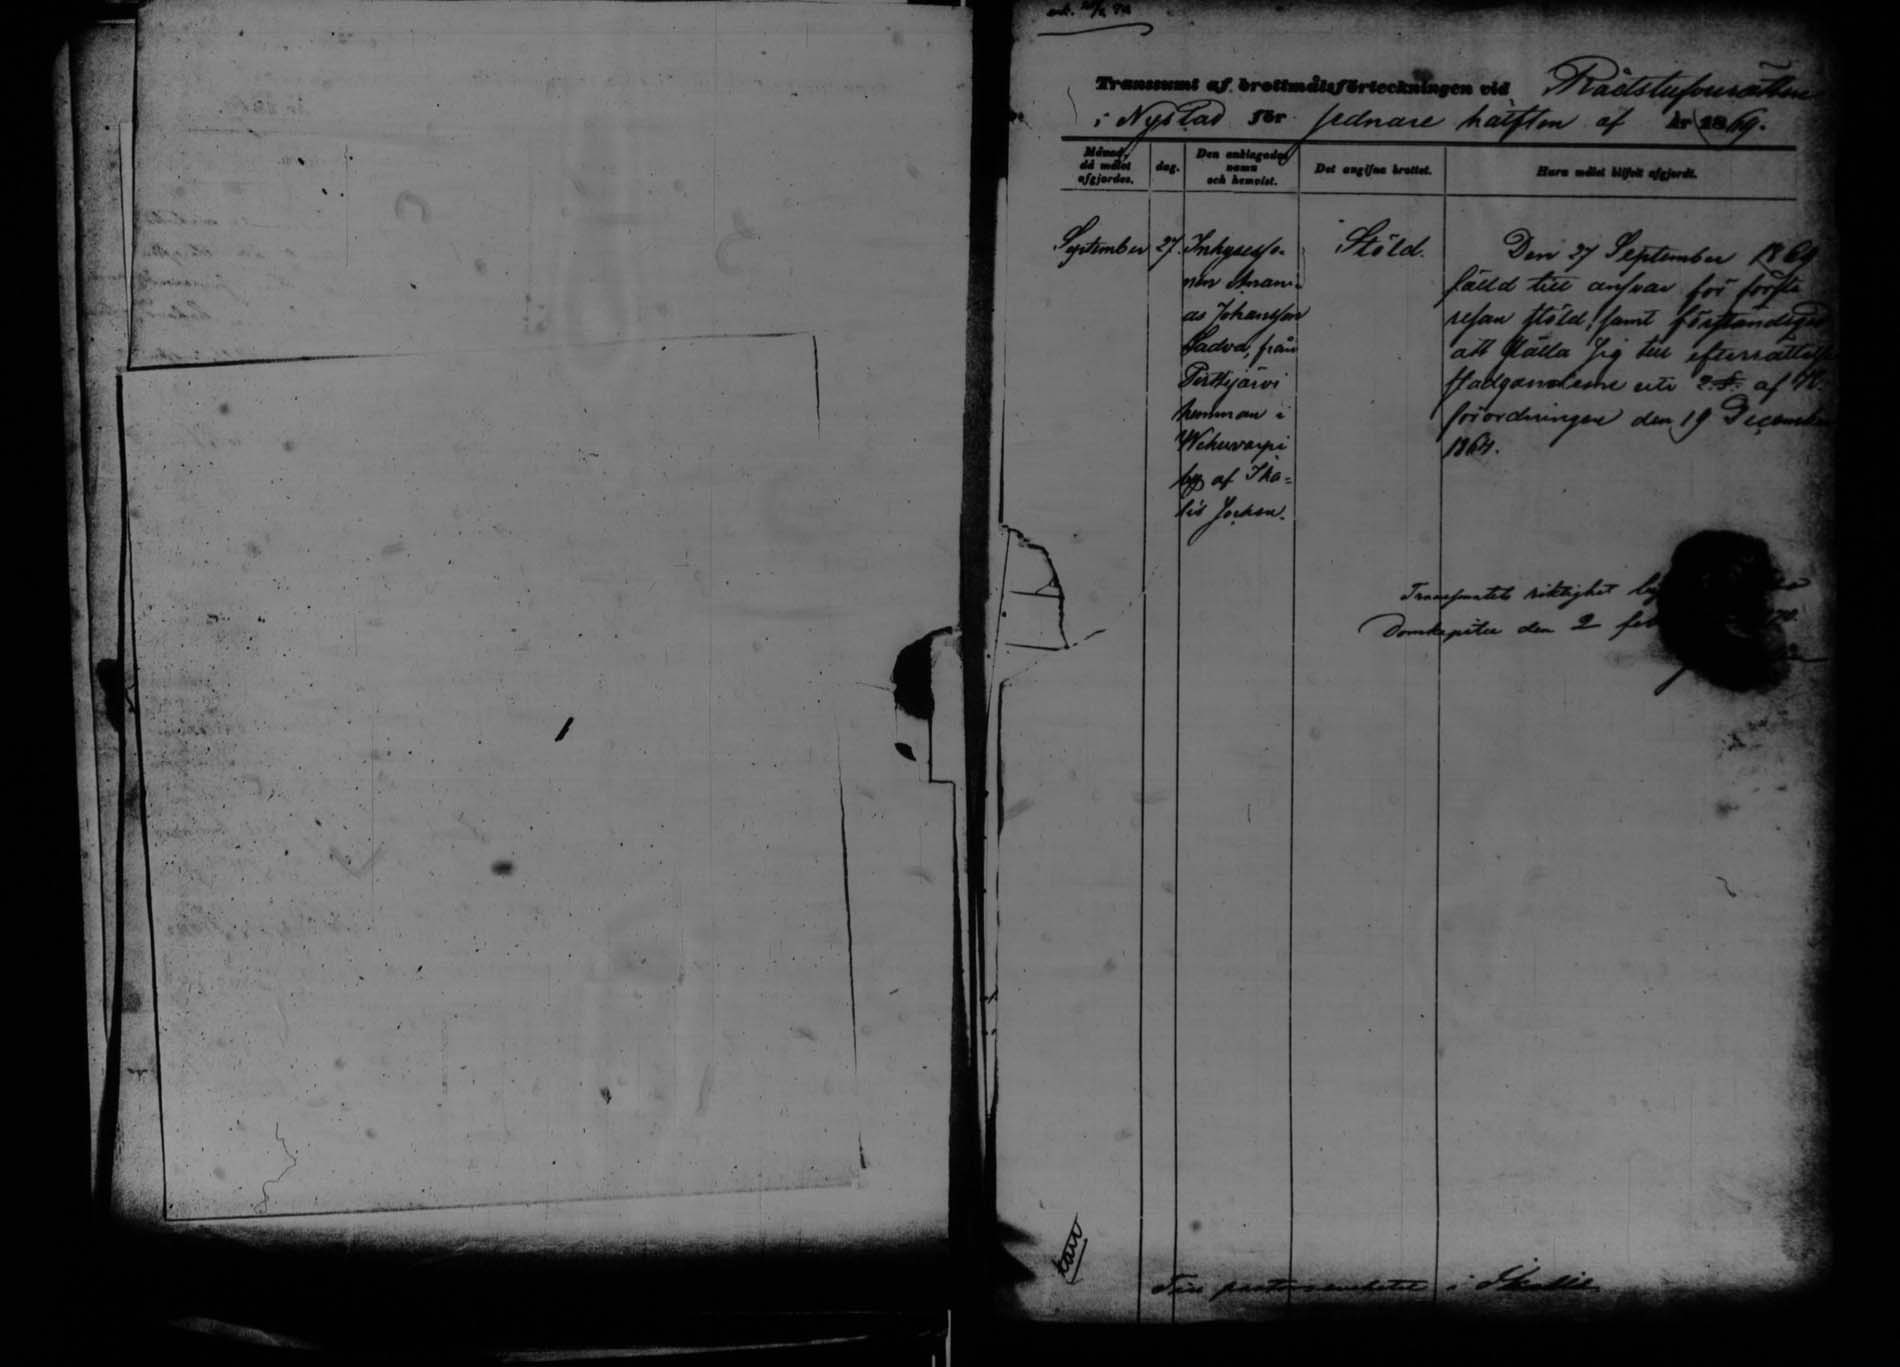 Transsumt af brottmålsförteckningen vid Rådstufvurätten
i Nystad för sednare hälften af år 1869.
Månad, då målet afgjordes.
dag.
Den anklagades namn och hemvist.
Det angifna brottet.
Huru målet blifvit afgjordt.
September 27.
Inhyseso-
nen Anani-
as Johansson
Sadva, från
Perttyjärvi
hemman i
Wehuvarpi
by af Ika-
lis Socken.
Stöld.
Den 27 September 1869
fälld till ansvar för första
resan stöld, samt
att ställa sig till efterrättelse
stadganderne uti 2. §. af
förordningen den 19 December
1864.
Transsumtets riktighet
Domkapitel den 2 feb
Till pastorsembetet i Ikalis